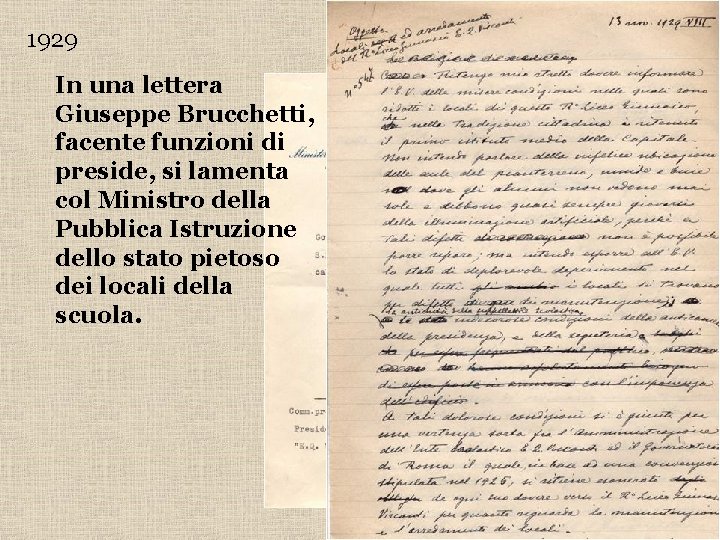 1929
In una lettera
Giuseppe Brucchetti,
facente funzioni di
preside, si lamenta
col Ministro della
Pubblica Istruzione
dello stato pietoso
dei locali della
scuola.
Minister
Go
S.
ca
Comm.pr
Presid
"E.Q.
13 nov. 1929 VIII
Oggetto
Locali ed arredamento
del R° Liceo Ginnasio E. Q. Visconti
n° 547
Ritengo mio stretto dovere informare
l'E.V. delle misere condizioni nelle quali sono
ridotti i locali di questo R° Liceo Ginnasio,
che
nella tradizione cittadina è ritenuto
il primo istituto medio della Capitale
Non intendo parlare della infelice ubicazione
delle aule del pianterreno, umide e buie
dove gli alunni non vedono mai
sole e debbono quasi sempre giovarsi
della illuminazione artificiale, perché a
tali difetti non è possibile
porre riparo; ma intendo esporre all'E.V.
lo stato di deplorevole deperimento nel
quale tutti i locali si trovano
per difetto di manutenzione,
la antichità della suppellettile scolastica,
e le indecorose condizioni della anticamera
della presidenza, e della segreteria
con l'importanza
dell'edificio.
A tali dolorose condizioni si è giunti per
una vertenza sorta fra l'Amministrazione
dell'Ente Scolastico E. Q. Visconti ed il Governatorato
di Roma il quale, in base ad una convenzione
stipulata nel 1926, si ritiene esonerato
da ogni suo dovere verso il R° Liceo Ginnasio
Visconti per quanto riguarda la manutenzione
e l'arredamento dei locali.